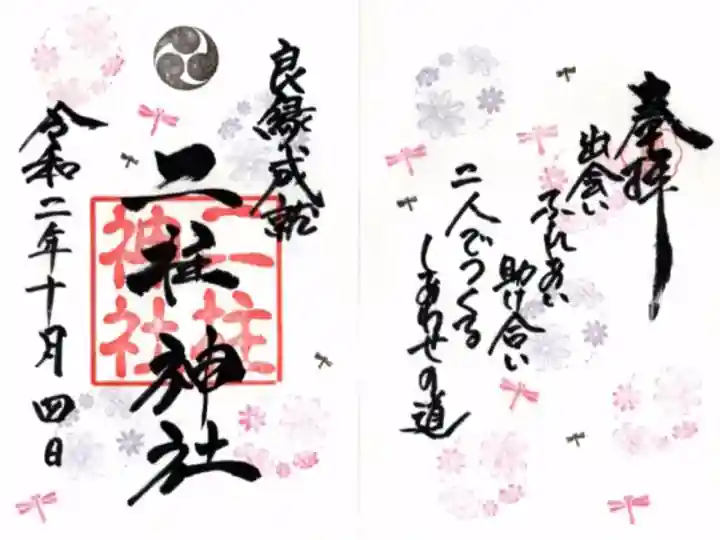 奉拝
出会い
ふれあい
助け合い
二人でつくる
しあわせの道
良縁成就
二柱神社
二柱神社
令和二年十月四日